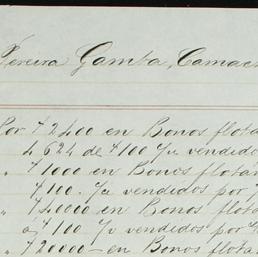 Pereira Gamba, Camac
Por $2400 en Bonos flota
4 624 de $100 c/u vendido
" $1000 en Bonos flota
$100. c/u vendidos por
" $40000 en Bonos flota
a $100 c/u vendidos por
" $20000 en Bonos flota